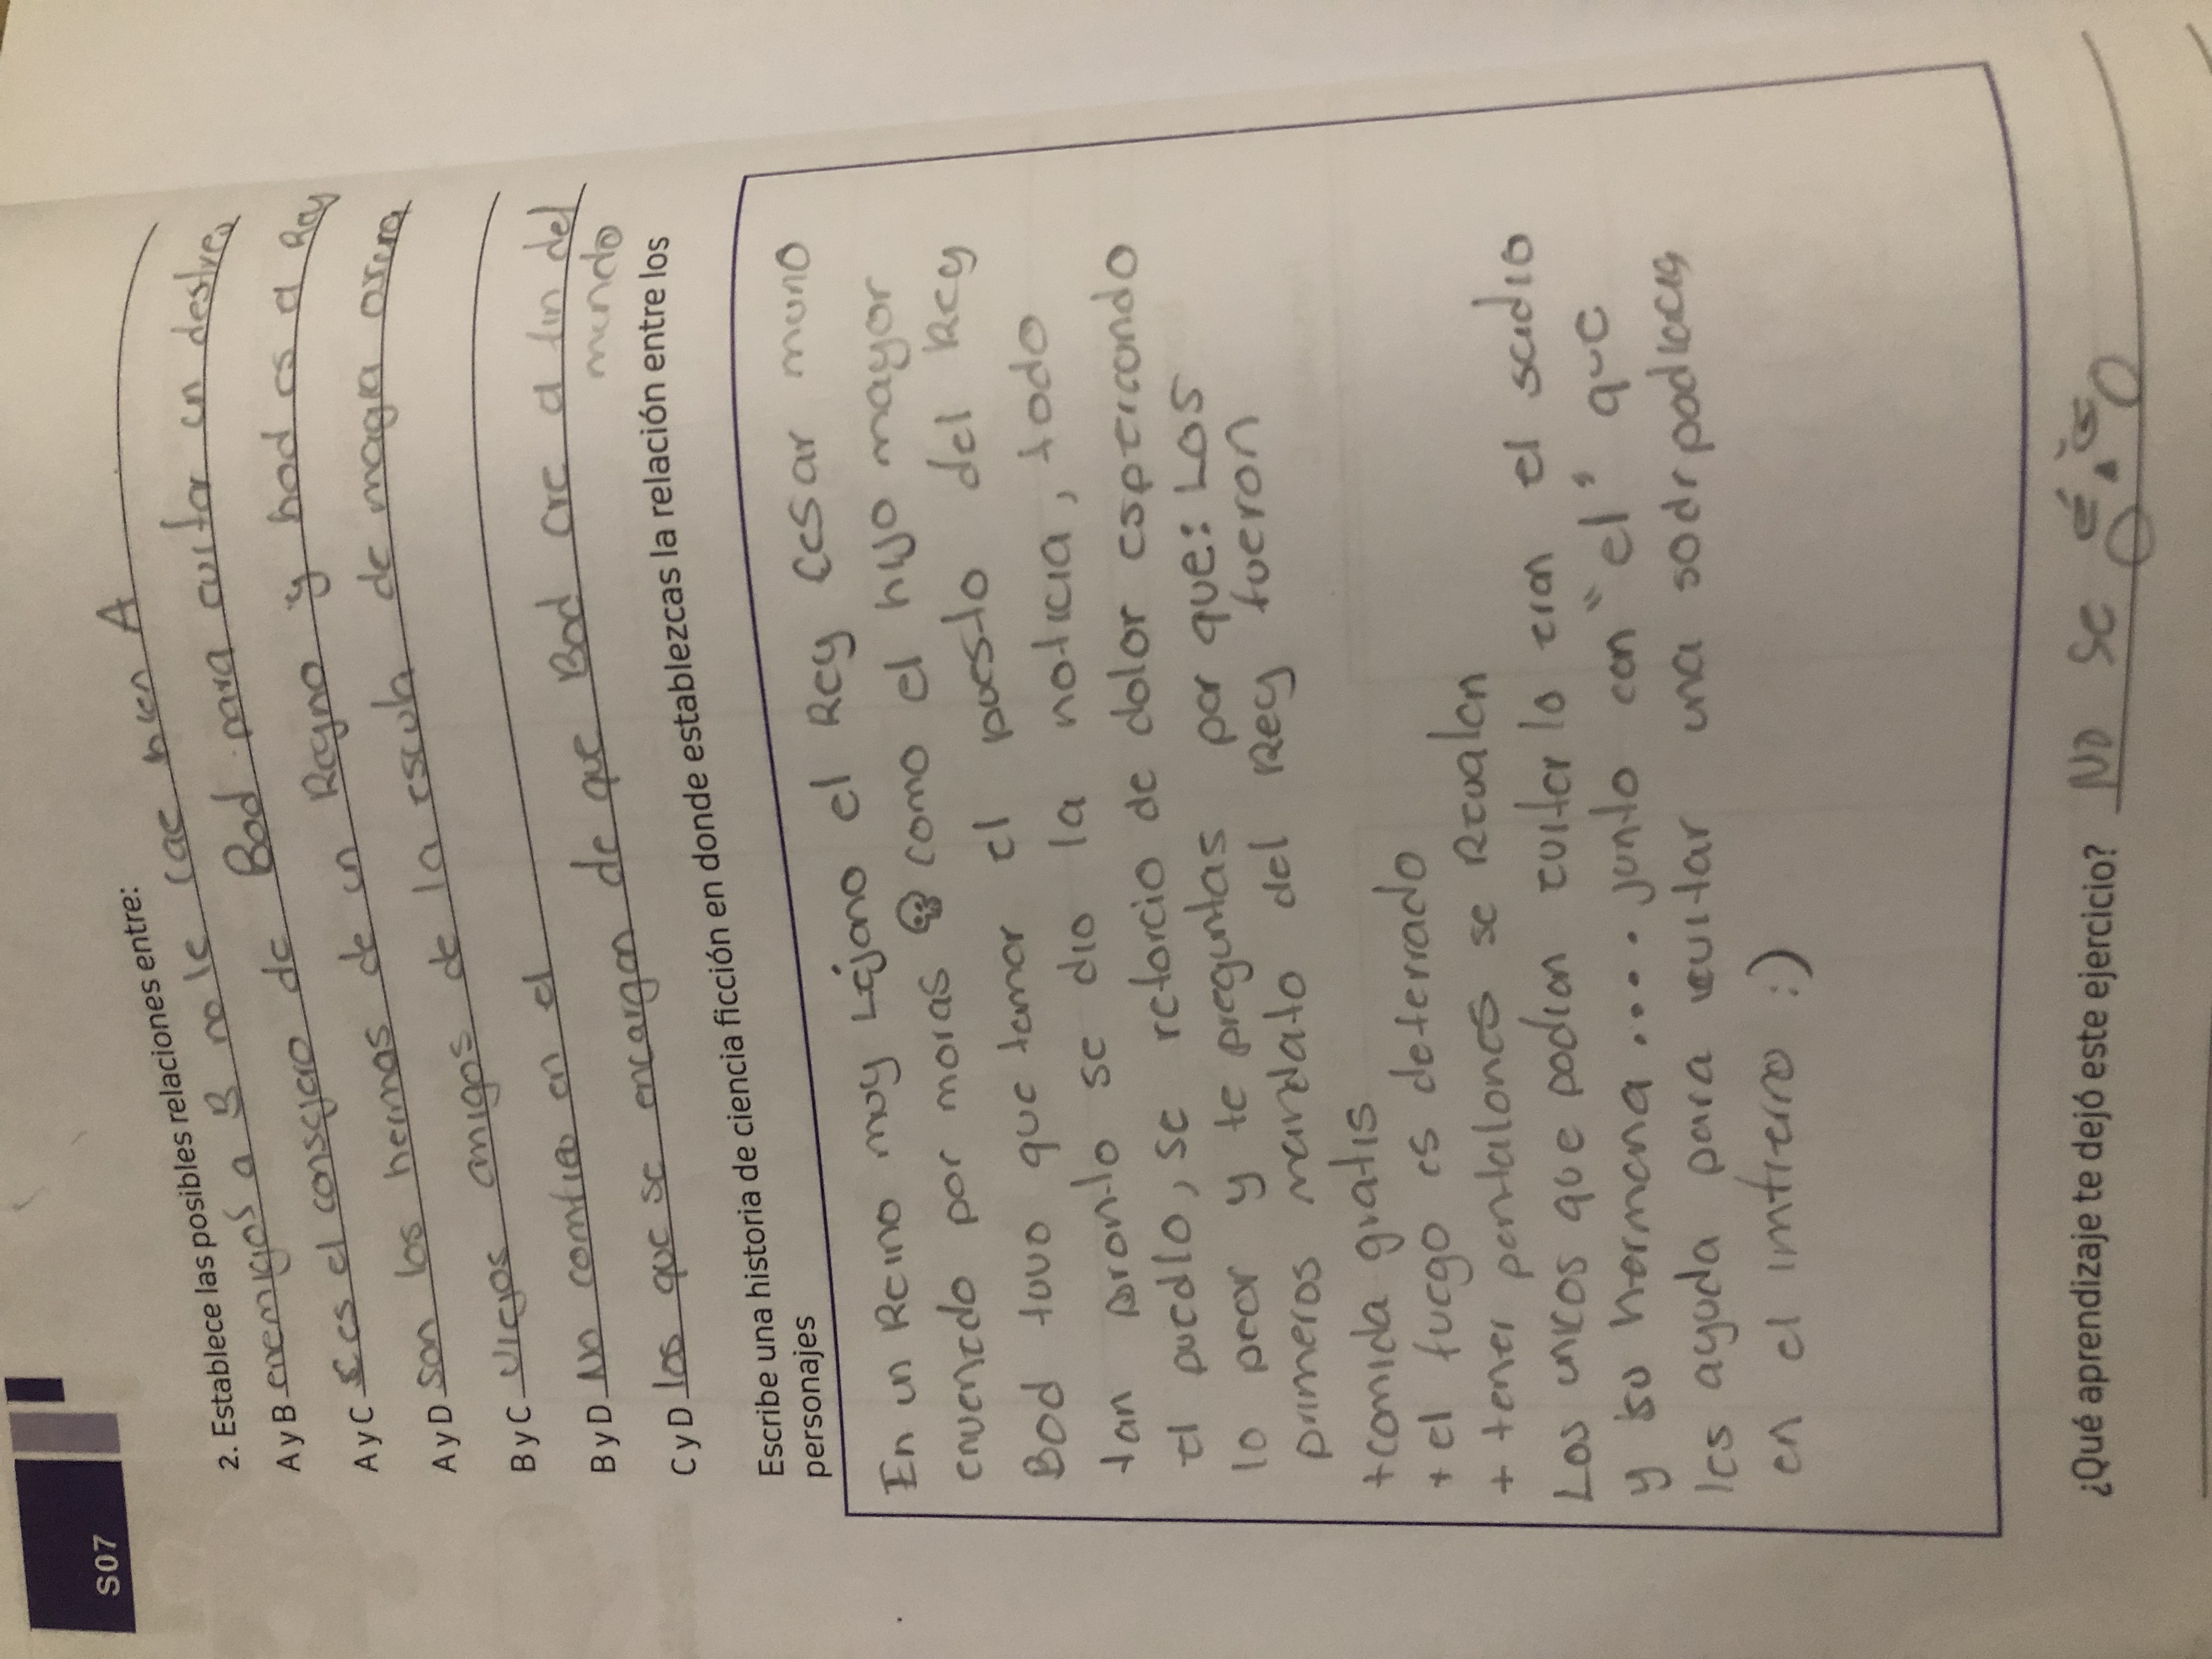 S07
2. Establece las posibles relaciones entre:
A y B enemigos a B no le cae bien A
A y C es el consejero de Bod para evitar un destre
A y D son los hermas de un Reyno y bod es a Rey
B y C viejos amigos de la escula de magia oscura
B y D No comfia en el
C y D los que se encargan de que Bod cre a fin del
mundo
Escribe una historia de ciencia ficción en donde establezcas la relación entre los
personajes
En un Reino muy Lejano el Rey Cesar murio
envenedo por moras como el hijo mayor
Bod tuvo que tamar el puesto del Rey
tan pronto se dio la noticia, todo
el pueblo, se retorcio de dolor esperando
lo peor y te preguntas por que: Los
primeros mandato del Rey fueron
+comida gratis
+ el fuego es deterrado
+ tener pantalones se Recualen
Los unicos que podian evitarlo eran el
y su hermana.... junto con "el" que
les ayuda para evitar una
en el imfierno :)
¿Qué aprendizaje te dejó este ejercicio? No se